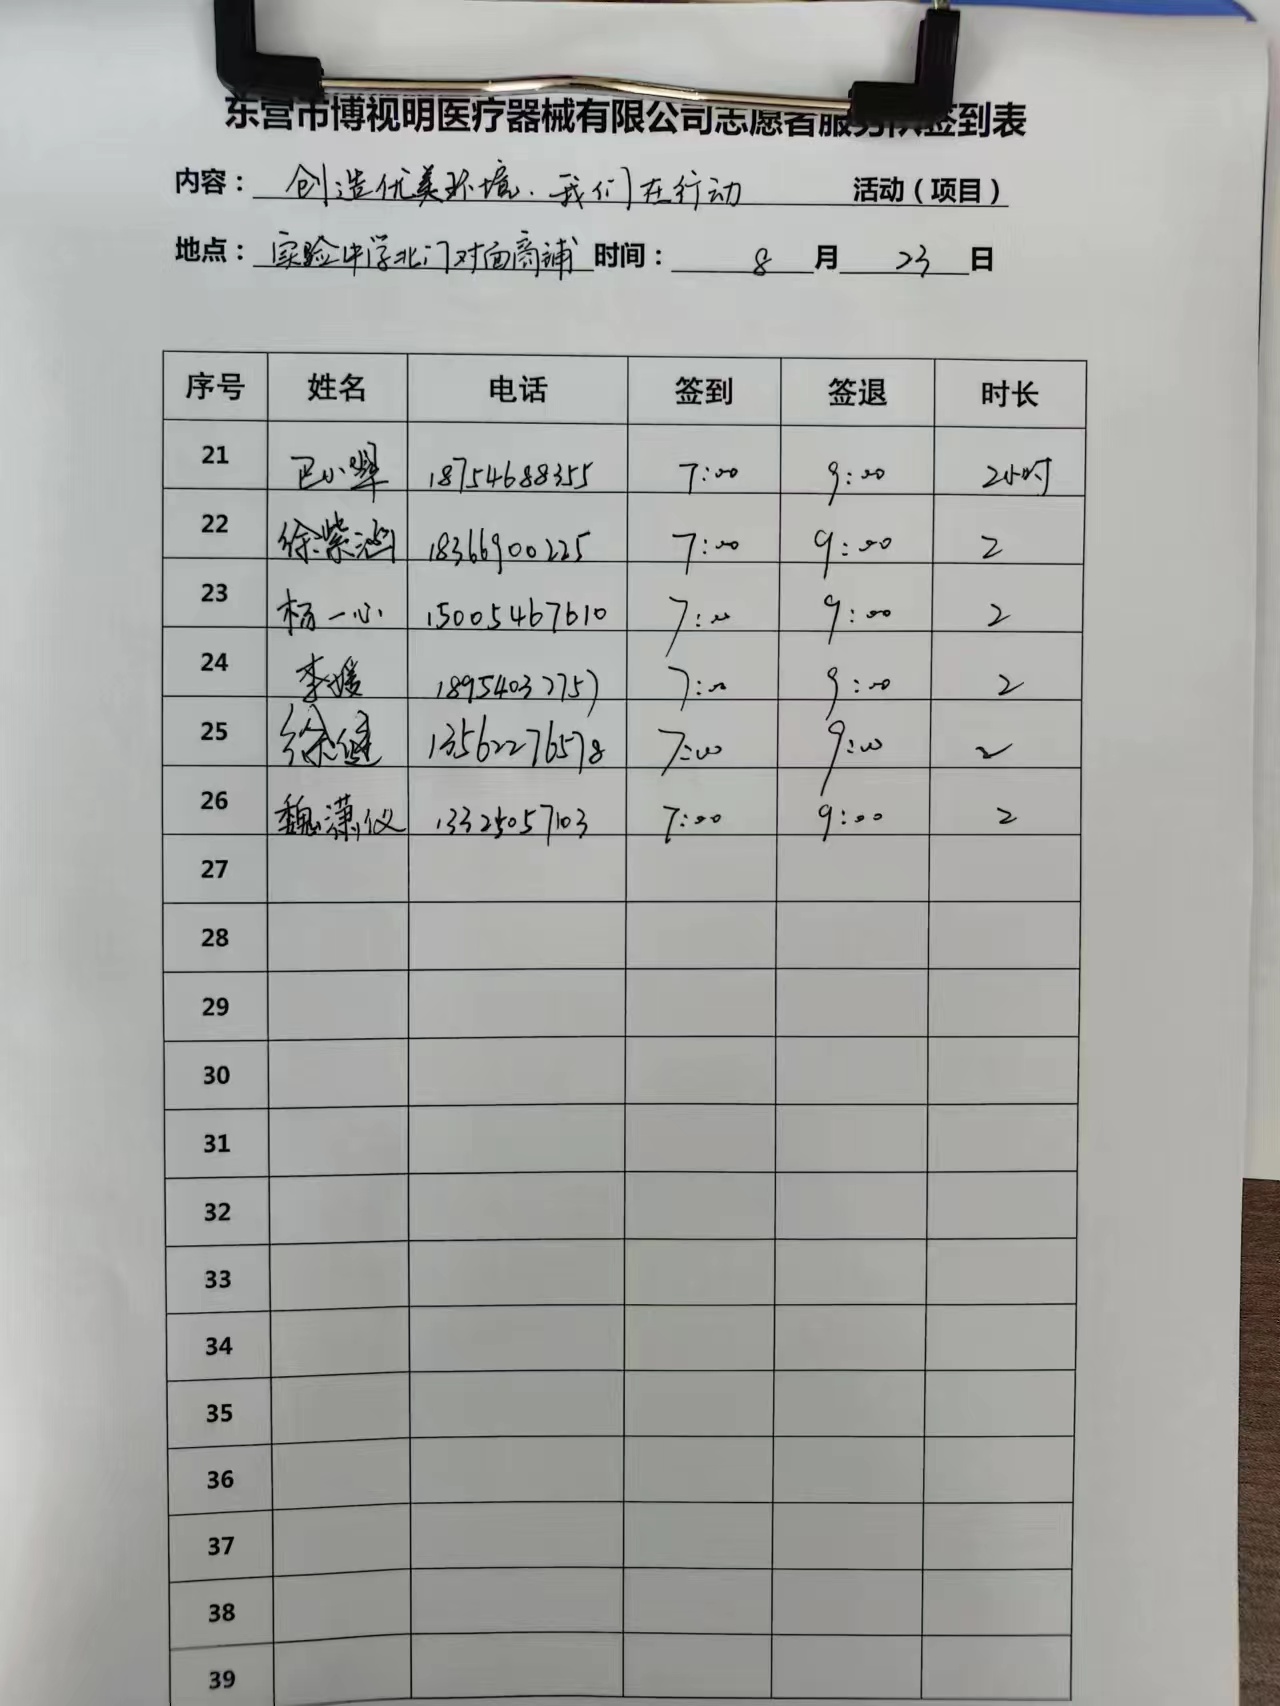 东营市博视明医疗器械有限公司志愿者服务队签到表
内容：创造优美环境.我们在行动 活动（项目）
地点：实验中学北门对面商铺 时间：8月23日
序号 姓名 电话 签到 签退 时长
21 巴小翠 18754688355 7:00 9:00 2小时
22 徐紫涵 18366900225 7:00 9:00 2
23 杨一心 15005467610 7:00 9:00 2
24 李媛 18954032757 7:00 9:00 2
25 徐健 13562276578 7:00 9:00 2
26 魏潇仪 13325057103 7:00 9:00 2
27
28
29
30
31
32
33
34
35
36
37
38
39